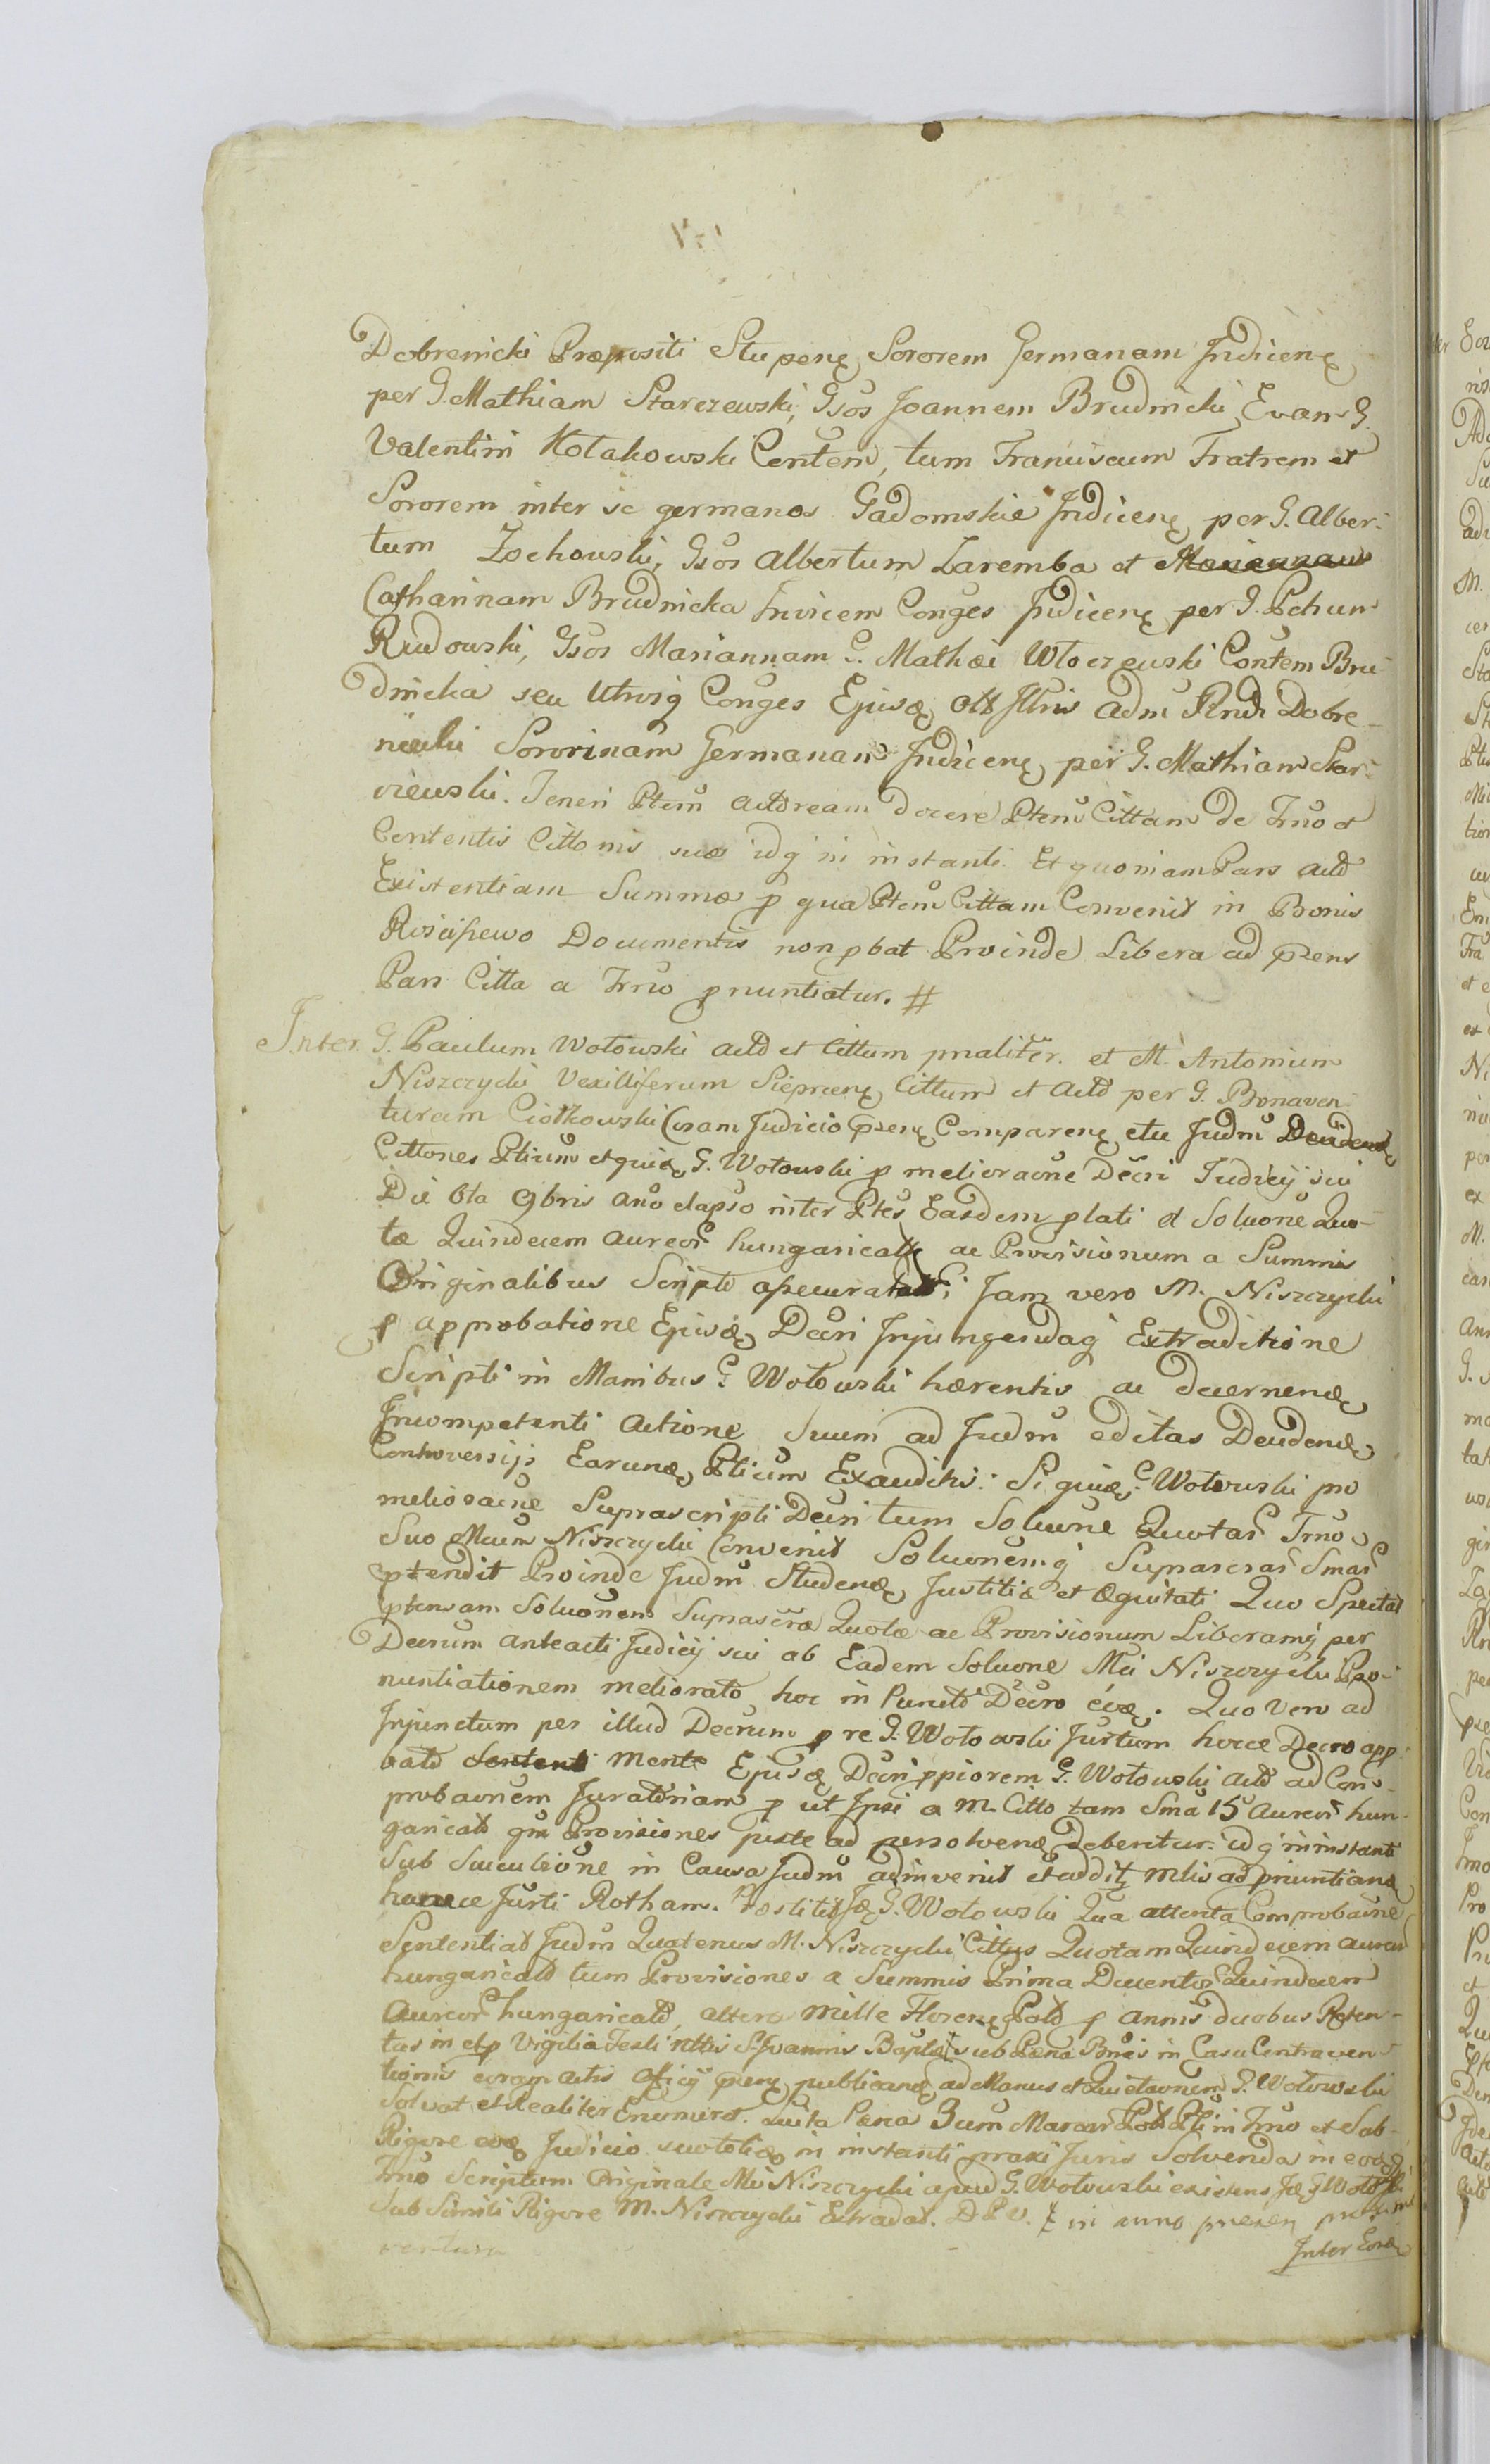 Dobrenicki Præpositi Stupenę Sororem Germanam Indicenę
per G. Mathiam Starczewski, Gsos Joannem Brudnicki Evan G.
Valentini Kołakowski Contem, tum Franciscum Fratrem et
Sororem inter se germanos Gadomskie Indicenę per G. Alber-
tum Zochowski, Gsos Albertum Zaremba et Mariannam
Catharinam Brudnicka Invicem Conges Indicenę per G. Petrum
Rudowski, Gsos Mariannam G. Mathæi Włoczewski Contem Bru-
dnicka seu Utrosq Conges Ejusdę olt Illris Adm Rndi Dobre-
nicki Sororinam Germanam Indicenę per G. Mathiam Star-
czewski. Teneri Ptem Actoream docere Ptem Cittam de Trno et
Contentis Cittonis suæ idq in instanti. Et quoniam Pars Actd
Existentiam Summæ p qua Ptem Cittam Convenit in Bonis
Rościszewo Documentis non pbat Proinde Libera ad præns
Pars Citta a Trno pnuntiatur. #
Inter G. Paulum Wołowski Actd et Cittum pnaliter. et M. Antonium
Niszczycki Vexilliferum Sieprcenę Cittum et Actd per G. Bonaven-
turam Ciołkowski Coram Judicio præne Comparenę etu Judm
Cittones Ptium et quidę G. Wołowski p melioraone Decri Judicij sui
Die 6ta 9bris Ano elapso inter Ptes Easdem plati et Soluone Quo-
tæ Quindecem Aureor hungaricall ac Provisionum a Summis
Originalibus Scripto assecuratar; Jam vero M. Niszczycki
p approbatione Ejusdę Decri Injungendaq Extraditione
Scripti in Manibus G. Wołowski hærentis ac decernendę
Incompetenti Actione Suum ad Judm editas Decidendę
Controversijs Earundę Ptium Exauditis: Si quidę G. Wołowski pro
melioraone Suprascripti Decri tum Soluone Quotar Trno
Suo Mcum Niszczycki Convenit Soluonemq Suprascrar Smar
ptendit Proinde Judm Studendę Justitiæ et Æquitati Quo Spectat
ptensam Soluonem Suprascræ Quotæ ac Provisionum Liberamq per
Decrum anteacti Judicij sui ab Eadem Soluone Mci Niszczycki Pro-
nuntiationem meliorato hoc in Puncto Decro
Quo Vero ad
Injunctum per illud Decrum p re G. Wołowski Jurtum hocce Decro app-
bato mente Ejusdę Decri ppiorem G. Wołowski Actd ad Com-
probaonem Juratoriam p ut Ipsi a M. Citto tam Sma 15 Aureor hun-
garicald qm Provisiones juste ad persolvendę deberetur. idq in instanti
Sub Succubione in Causa Judm adinvenit et addit Mlis ad pnuntiandę
hancce Jurti Rotham. Præstitit Jdę G. Wołowski Qua attenta Comprobaone
Sententiat Judm Quatenus M. Niszczycki Cittus Quotam Quindecem Aureor
hungaricald tum Provisiones a Summis Prima Ducentor Quindecem
Aureor hungaricald, altera Mille Florenę Pold p Annis duobus Reten-
tas in et p Vigilia Festi Nttis S. Joannis Baptæ sub Pæna Bnis in Casu Contraven-
tionis coram actis Officij præne publicandę ad Manus et Quietaonem G. Wołowski
Solvat et Realiter Enumeret. Luita Pæna 3um Marcar Pold Pti in Trno et Sub
Rigore Judicio in instanti praxi Juris Solvenda in eodę
Trno Scriptum Originale Mci Niszczycki apud G. Wołowski existens Jdę G. Wołowski
Sub Simili Rigore M. Niszczycki Extradat. D P V. in anno
ventura
Inter Eosdę